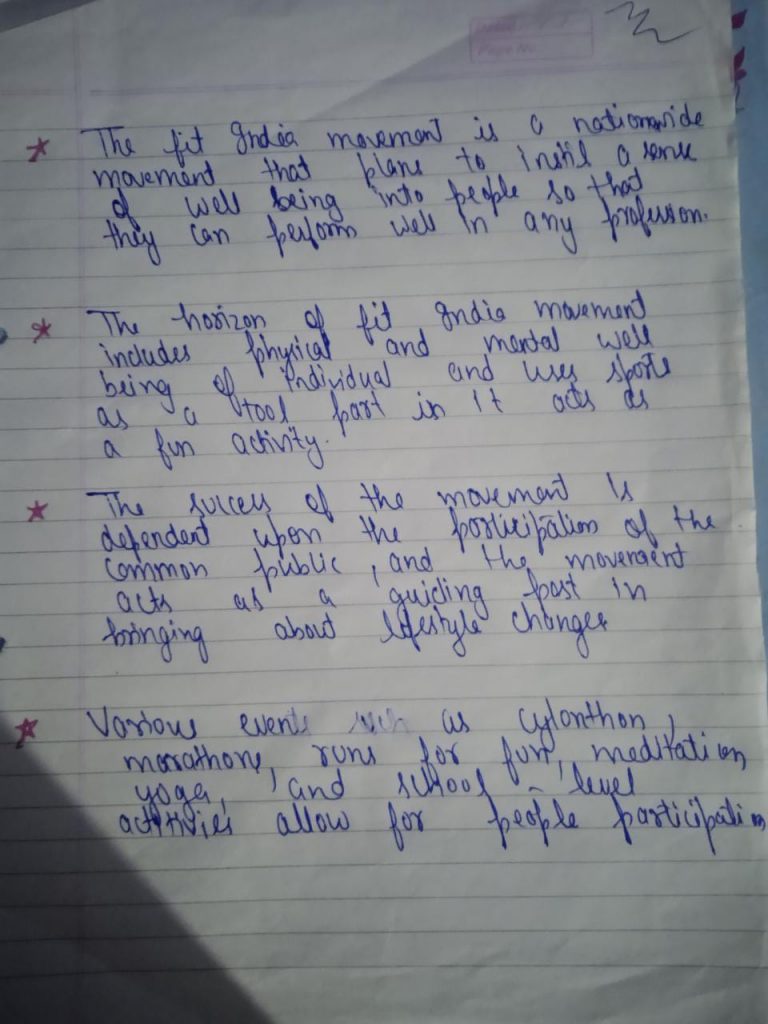 Page No.
★ The fit India movement is a nationwide
movement that plans to instil a sense
of well being into people so that
they can perform well in any profession.
★ The horizon of fit India movement
includes physical and mental well
being of individual and uses sports
as a tool part in it acts as
a fun activity.
★ The success of the movement is
dependent upon the participation of the
common public, and the movement
acts as a guiding post in
bringing about lifestyle changes
★ Various events such as cylonthon,
marathons, runs for fun, meditation
yoga, and school-level
activities allow for people participation